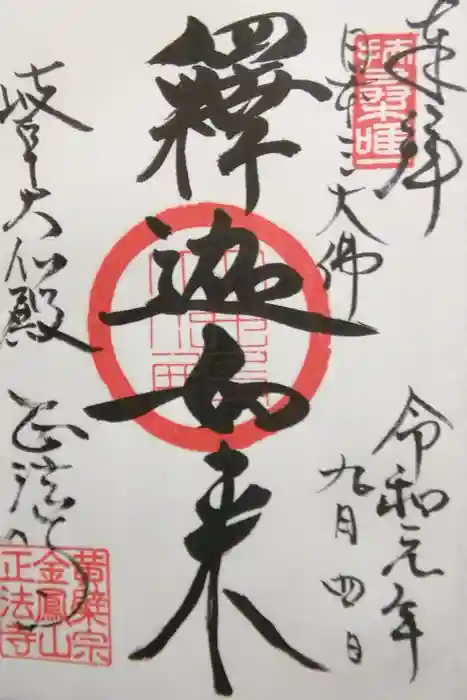 奉拝
令和元年
九月四日
日本三大佛
釋迦如来
岐阜大仏殿
正法寺
黄檗宗
金鳳山
正法寺